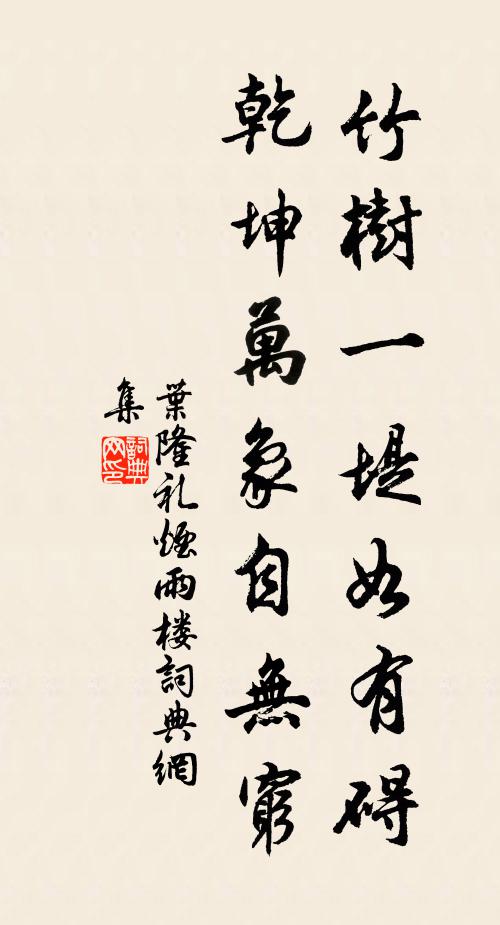 竹樹一堤如有碍
乾坤萬象自無窮
葉隆礼煙雨楼詞典網
集
詞典
网印